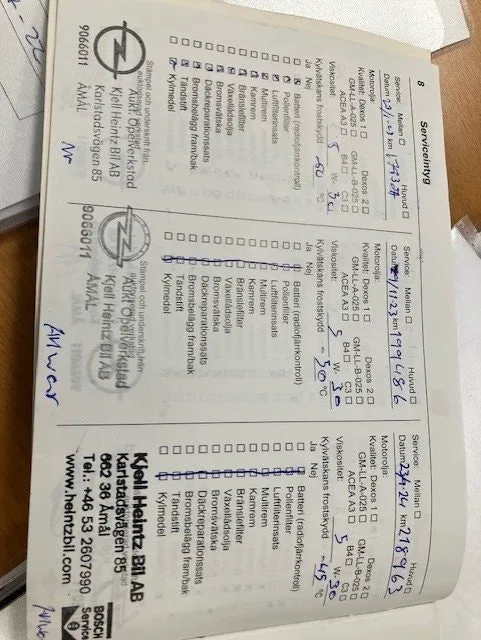 8 Serviceintyg
Service: Mellan ☐ Huvud ☐
Datum km
Motorolja:
Kvalitet: Dexos 1 ☐ Dexos 2 ☐
GM-LL-A-025 ☐ GM-LL-B-025 ☐
ACEA A3 ☐ B4 ☐ C3 ☐
Viskositet: 5 W- 30
Kylvätskans frostskydd -50 °C
Ja Nej
Batteri (radiofjärrkontroll)
Pollenfilter
Luftfilterinsats
Multirem
Kamrem
Bränslefilter
Växellådsolja
Bromsvätska
Däckreparationssats
Bromsbelägg fram/bak
Tändstift
Kylmedel
Stämpel och underskrift från
Opelverkstad
Kjell Heintz Bil AB
Karlstadsvägen 85
9066011 ÅMÅL
Service: Mellan ☐ Huvud ☐
Datum 29/11-23 km 199486
Motorolja:
Kvalitet: Dexos 1 ☐ Dexos 2 ☐
GM-LL-A-025 ☐ GM-LL-B-025 ☐
ACEA A3 ☐ B4 ☐ C3 ☐
Viskositet: 5 W- 30
Kylvätskans frostskydd -50 °C
Ja Nej
Batteri (radiofjärrkontroll)
Pollenfilter
Luftfilterinsats
Multirem
Kamrem
Bränslefilter
Växellådsolja
Bromsvätska
Däckreparationssats
Bromsbelägg fram/bak
Tändstift
Kylmedel
Stämpel och underskrift från
Aukt Opelverkstad
Kjell Heintz Bil AB
9066011 ÅMÅL
Service: Mellan ☐ Huvud ☐
Datum km 218963
Motorolja:
Kvalitet: Dexos 1 ☐ Dexos 2 ☐
GM-LL-A-025 ☐ GM-LL-B-025 ☐
ACEA A3 ☐ B4 ☐ C3 ☐
Viskositet: 5 W- 30
Kylvätskans frostskydd -45 °C
Ja Nej
Batteri (radiofjärrkontroll)
Pollenfilter
Luftfilterinsats
Multirem
Kamrem
Bränslefilter
Växellådsolja
Bromsvätska
Däckreparationssats
Bromsbelägg fram/bak
Tändstift
Kylmedel
Kjell Heintz Bil AB
Karlstadsvägen 85
662 36 Åmål
Tel.: +46 53 2607990
www.heintzbil.com
BOSCH
Service